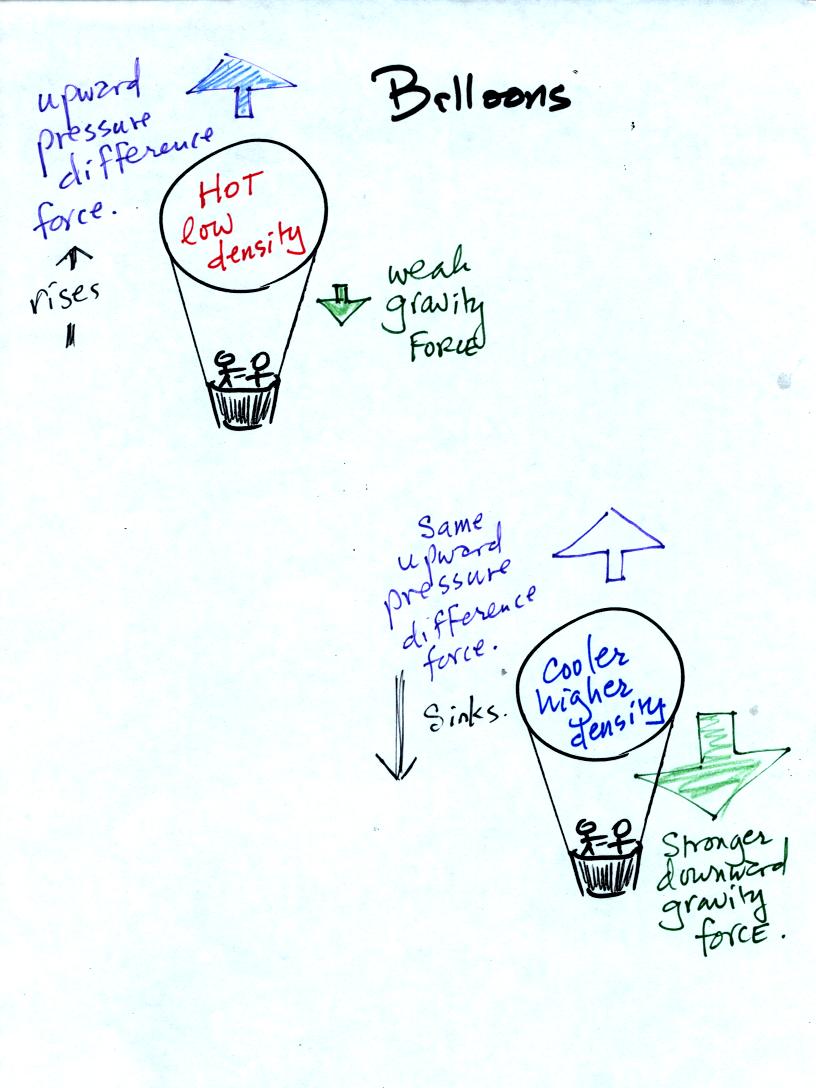 Balloons
upward
pressure
difference
force.
rises
HOT
low
density
weak
gravity
FORCE
Same
upward
pressure
difference
force.
Sinks.
Cooler
higher
density
Stronger
downward
gravity
force.